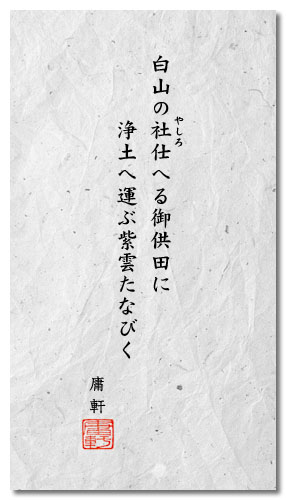 白山の社仕へる御供田に
やしろ
浄土へ運ぶ紫雲たなびく
庸軒